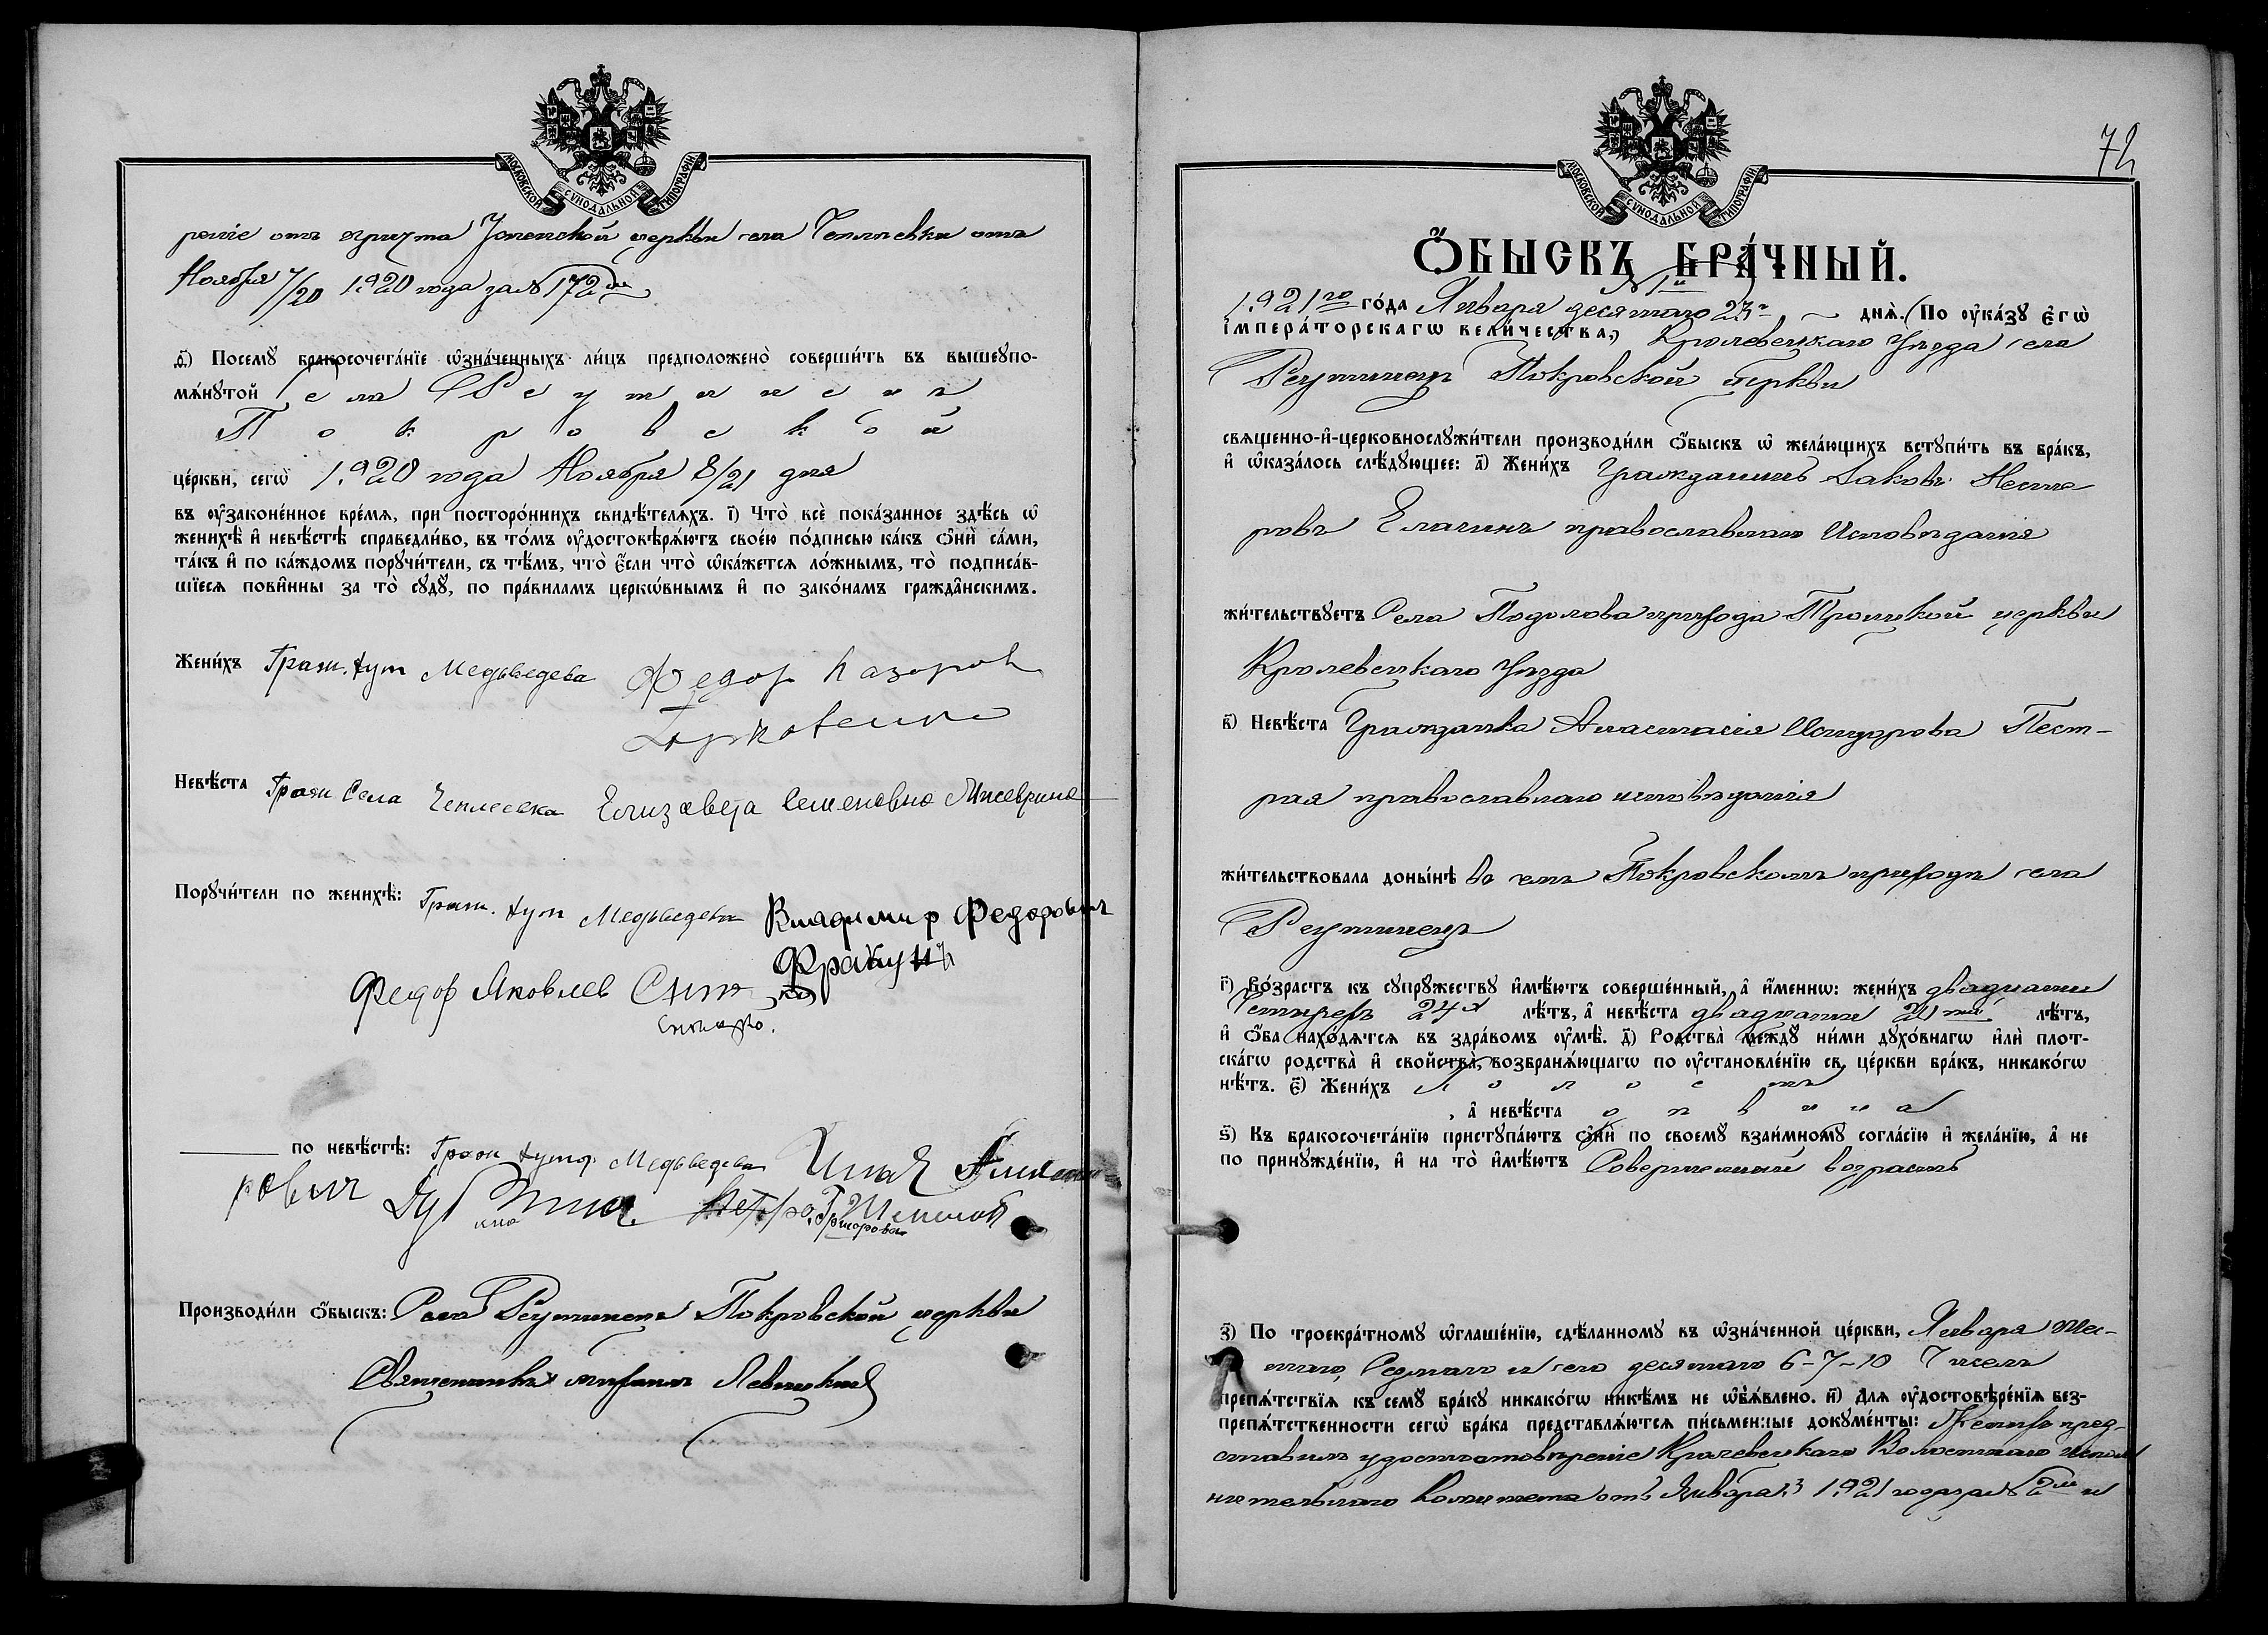 МОСКОВСКОЙ СѴНОДАЛЬНОЙ ТИПОГРАФІИ
реніе отъ причта Успенской церкви села Чеплѣевки отъ
Ноября 7/20 1920 года за № 172мъ
д҃) Посемꙋ бракосочета́нїе ѡ҆зна́ченныхъ ли́цъ предположено̀ соверши́ть въ вышеꙋпо-
мѧ́нꙋтой села Реутинецъ
Покровской
це́ркви, сегѡ̀ 1920 года Ноября 8/21 дня
въ оу҆зако́ненное вре́мѧ, при посторо́ннихъ свидѣ́телѧхъ. і҃) Что̀ всѐ пока́занное здѣ́сь ѡ҆
женихѣ̀ и҆ невѣ́стѣ справедли́во, въ то́мъ оу҆достовѣрѧ́ютъ свое́ю по́дписью ка́къ ѻ҆нѝ са́ми,
та́къ и҆ по ка́ждомъ порꙋчи́тели, съ тѣ́мъ, что̀ є҆́сли что̀ ѡ҆ка́жетсѧ ло́жнымъ, то̀ подписа́в-
шїесѧ пови́нны за то̀ сꙋдꙋ̀, по пра́виламъ церко́внымъ и҆ по зако́намъ гражда́нскимъ.
Жени́хъ Граж. Хут Медьведева Федор Назоров
Невѣ́ста Граж Села Чеплеевка Елизавета Семеновна
Порꙋчи́тели по женихѣ̀: Граж. Хут Медьведева Владимир Федорович
Федор Яковлев
по невѣ́стѣ: Граж Хутор Медьведева
рович
Производи́ли ѻ҆́быскъ: Села Реутинецъ Покровской церкви
Священникъ Левицкій
72
МОСКОВСКОЙ СѴНОДАЛЬНОЙ ТИПОГРАФІИ
Ѻ҆́БЫСКЪ БРА́ЧНЫЙ.
№ 1й
1921го го́да Января десятаго 23го днѧ̀. (По оу҆ка́зꙋ є҆гѡ̀
і҆мпера́торскагѡ вели́чества,) Кролевецкаго Уѣзда села
Реутинецъ Покровской церкви
свѧще́нно-и҆-церковнослꙋжи́тели производи́ли ѻ҆́быскъ ѡ҆ жела́ющихъ встꙋпи́ть въ бра́къ,
и҆ ѡ҆каза́лось слѣ́дꙋющее: а҃) Жени́хъ Гражданинъ Іаковъ Несте
ровъ Елагинъ православнаго Исповѣданія
жи́тельствꙋетъ Села Подолова прихода Троицкой церкви
Кролевецкаго Уѣзда
в҃) Невѣ́ста Гражданка Анастасія Исидорова Пест-
рая православнаго исповѣданія
жи́тельствовала доны́нѣ въ семъ Покровскомъ приходѣ села
Реутинецъ
г҃) Во́зрастъ къ сꙋпрꙋ́жествꙋ и҆мѣ́ютъ соверше́нный, а҆ и҆́меннѡ: жени́хъ двадцати
Четырехъ 24х лѣ́тъ, а҆ невѣ́ста двадцати 20ти лѣ́тъ,
и҆ ѻ҆́ба нахо́дѧтсѧ въ здра́вомъ оу҆мѣ̀. д҃) Родства̀ междꙋ̀ ни́ми дꙋхо́внагѡ и҆лѝ плот-
ска́гѡ родства̀ и҆ свойства̀, возбранѧ́ющагѡ по оу҆становле́нїю св. це́ркви бра́къ, никако́гѡ
нѣ́тъ. є҃) Жени́хъ холостъ
, а҆ невѣ́ста дѣвица
ѕ҃) Къ бракосочета́нїю пристꙋпа́ютъ ѻ҆нѝ по своемꙋ̀ взаи́мномꙋ согла́сїю и҆ жела́нїю, а҆ не
по принꙋжде́нїю, и҆ на то̀ и҆мѣ́ютъ Совершенный возрастъ
з҃) По троекра́тномꙋ ѡ҆глаше́нїю, сдѣ́ланномꙋ въ ѡ҆зна́ченной це́ркви, Января шес-
таго, Седмаго и сего десятаго 6-7-10 Чиселъ
препѧ́тствїѧ къ семꙋ̀ бра́кꙋ никако́гѡ никѣ́мъ не ѡ҆б̾ѧ́влено. и҃) Для оу҆достовѣре́нїѧ без-
препѧ́тственности сегѡ̀ бра́ка представлѧ́ютсѧ пи́сьменные докꙋме́нты: Женихъ пред-
ставилъ удостовѣреніе Кролевецкаго Волостнаго Испол
нительнаго Комитета отъ Января 3 1921 года за № 2мъ и